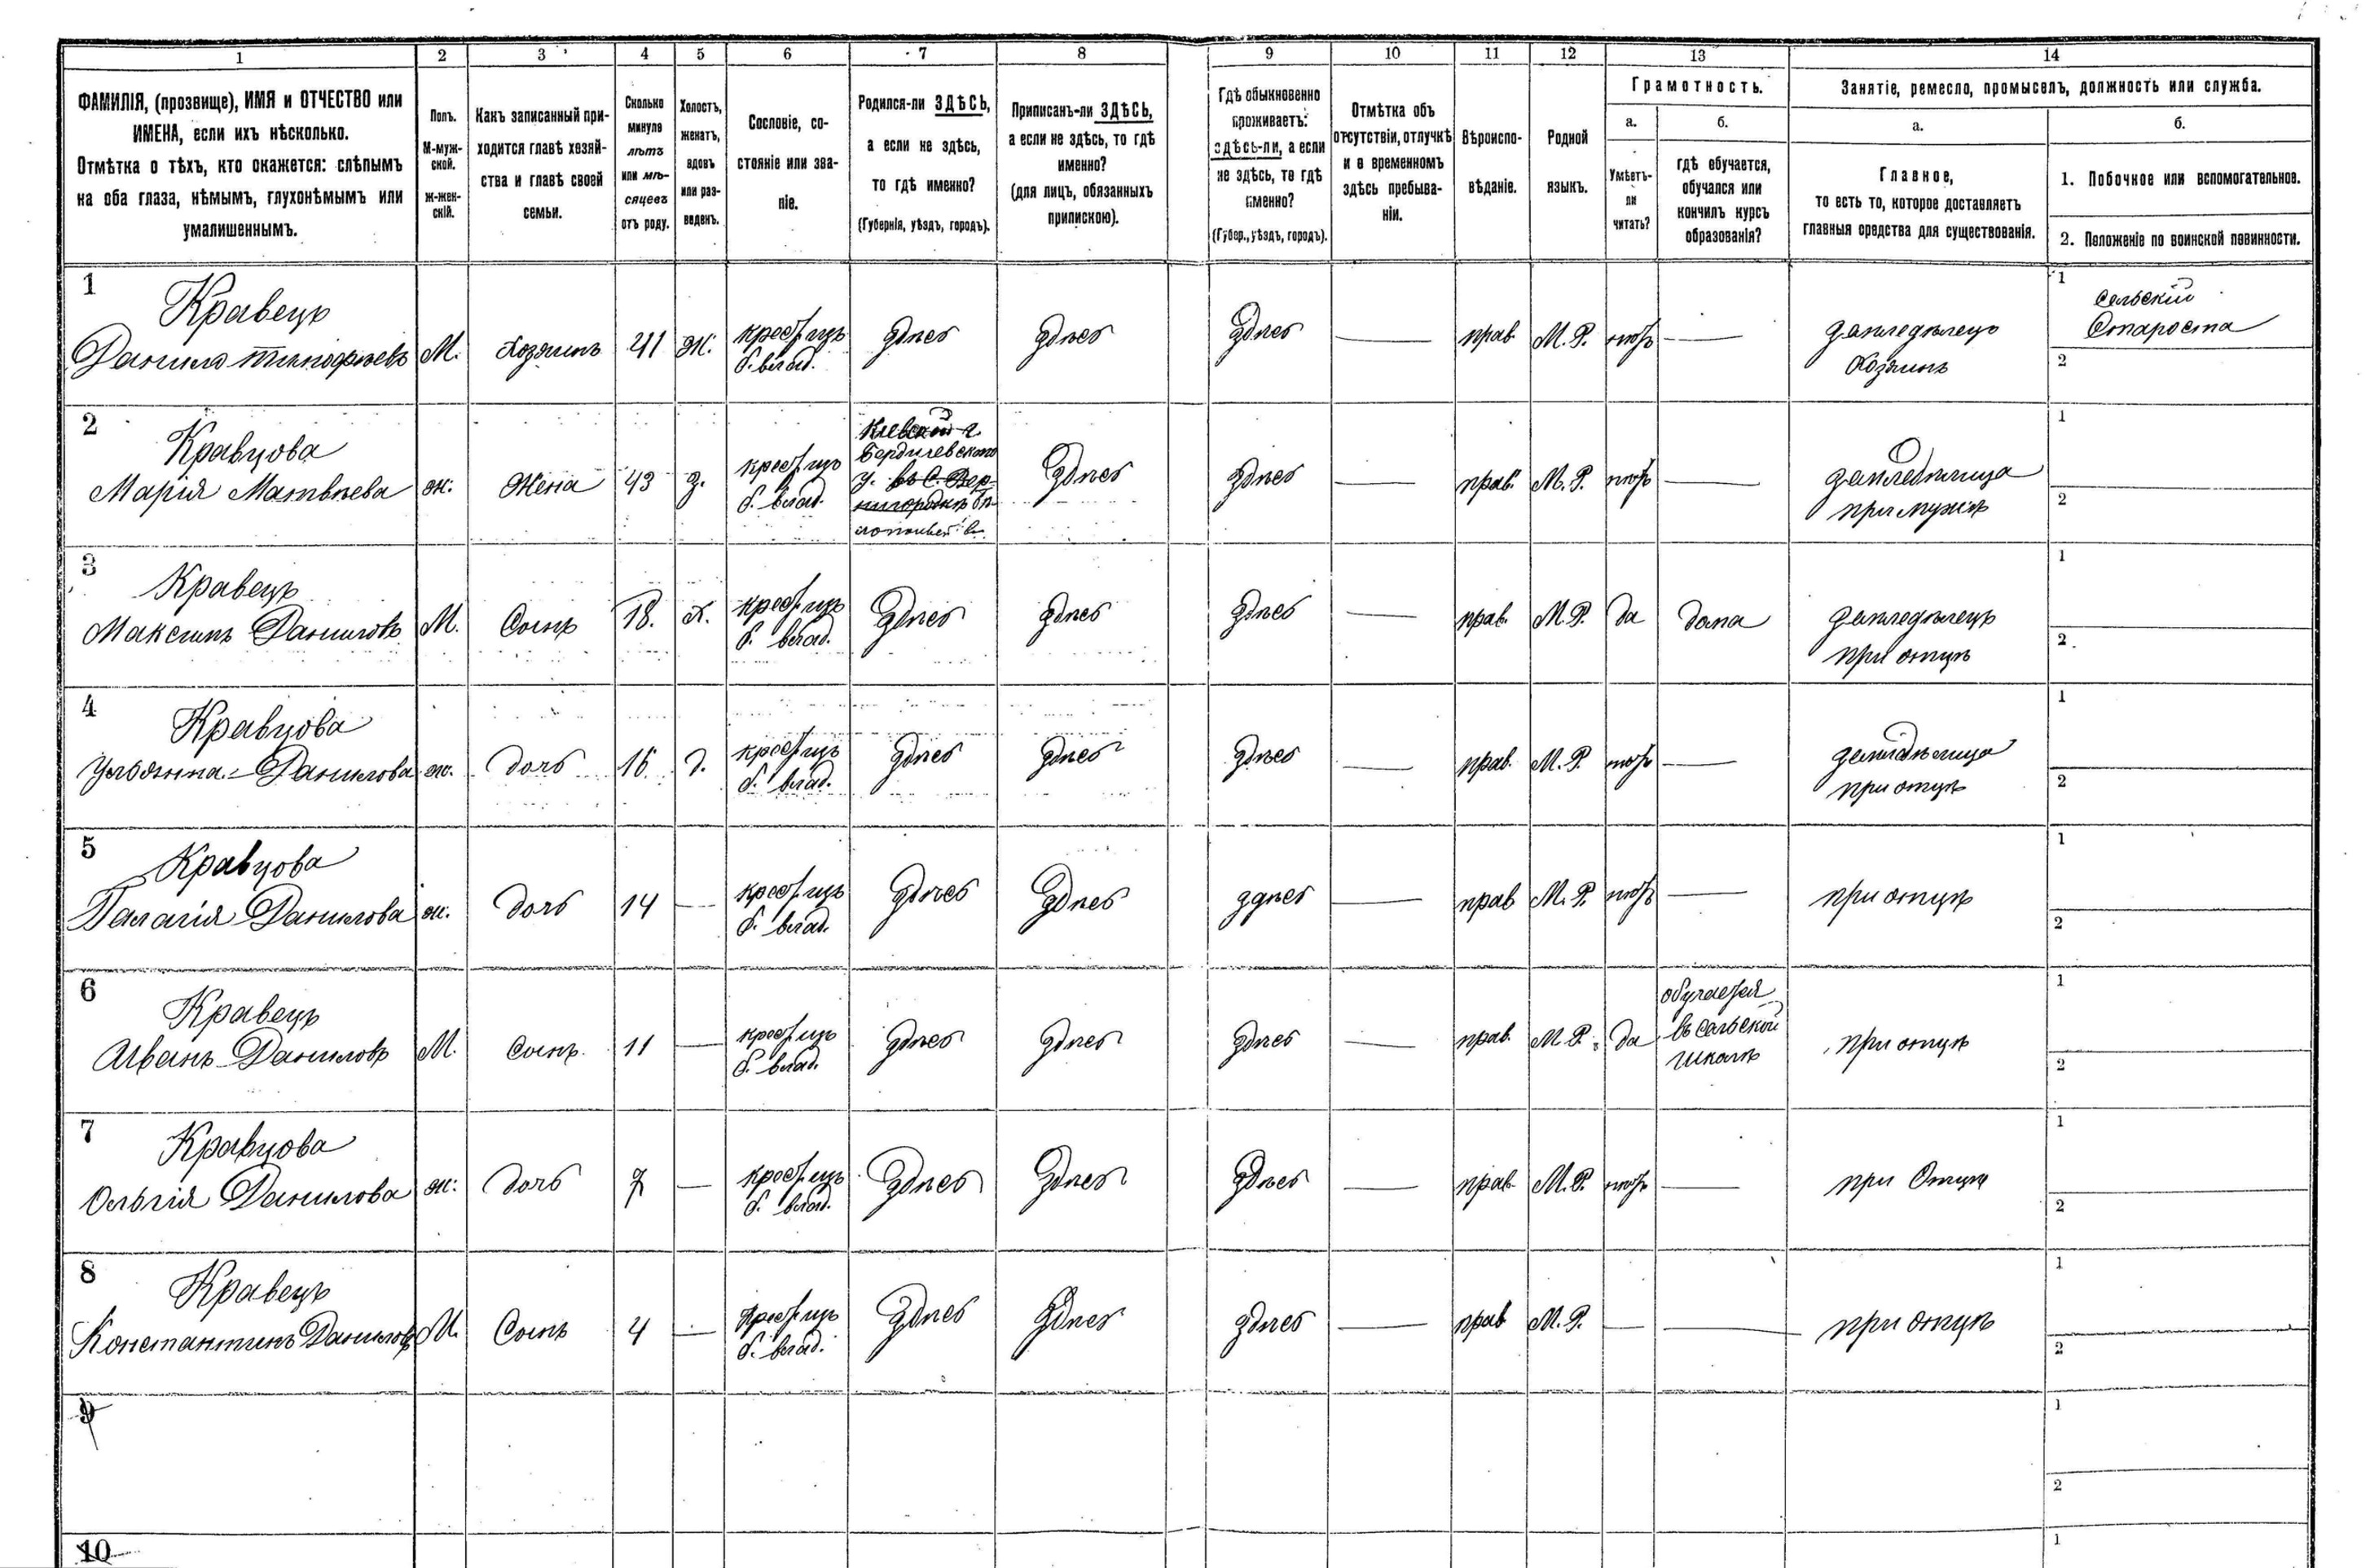 1 2 3 4 5 6 7 8 9 10 11 12 13 14
ФАМИЛІЯ, (прозвище), ИМЯ и ОТЧЕСТВО или
ИМЕНА, если ихъ нѣсколько.
Отмѣтка о тѣхъ, кто окажется: слѣпымъ
на оба глаза, нѣмымъ, глухонѣмымъ или
умалишеннымъ.
Полъ.
М-муж-
ской.
Ж-жен-
скій.
Какъ записанный при-
ходится главѣ хозяй-
ства и главѣ своей
семьи.
Сколько
минуло
лѣтъ
или мѣ-
сяцевъ
отъ роду.
Холостъ,
женатъ,
вдовъ
или раз-
веденъ.
Сословіе, со-
стояніе или зва-
ніе.
Родился-ли ЗДѢСЬ,
а если не здѣсь,
то гдѣ именно?
(Губернія, уѣздъ, городъ).
Приписанъ-ли ЗДѢСЬ,
а если не здѣсь, то гдѣ
именно?
(для лицъ, обязанныхъ
припискою).
Гдѣ обыкновенно
проживаетъ:
здѣсь-ли, а если
не здѣсь, то гдѣ
именно?
(Губер., уѣздъ, городъ).
Отмѣтка объ
отсутствіи, отлучкѣ
и о временномъ
здѣсь пребыва-
ніи.
Вѣроиспо-
вѣданіе.
Родной
языкъ.
Грамотность.
а. б.
Умѣетъ-
ли
читать?
гдѣ обучается,
обучался или
кончилъ курсъ
образованія?
Занятіе, ремесло, промыселъ, должность или служба.
а. б.
Главное,
то есть то, которое доставляетъ
главныя средства для существованія.
1. Побочное или вспомогательное.
2. Положеніе по воинской повинности.
1
Кравецъ
Данило Тимофѣевъ М. Хозяинъ 41 ж. крест. изъ б. влад. здѣсь здѣсь здѣсь — прав. М. Р. нѣтъ — земледѣлецъ
Хозяинъ
1 Сельскій
Староста
2
2
Кравцова
Марія Матвѣева ж. Жена 43 з. крест. изъ б. влад.
Кіевской г.
Бердичевскаго
у. въ С.
Здѣсь здѣсь прав. М. Р. нѣтъ — земледѣлица
при мужѣ
1
2
3
Кравецъ
Максимъ Даниловъ М. Сынъ 18. х. крест. изъ б. влад. Здѣсь здѣсь здѣсь — прав. М. Р. да дома земледѣлецъ
при отцѣ
1
2
4
Кравцова
Ульянна Данилова ж. дочь 16 д. крест. изъ б. влад. здѣсь здѣсь здѣсь — прав. М. Р. нѣтъ — земледѣлица
при отцѣ
1
2
5
Кравцова
Палагія Данилова ж. дочь 14 — крест. изъ б. влад. здѣсь Здѣсь здѣсь — прав М. Р. нѣтъ — при отцѣ
1
2
6
Кравецъ
Иванъ Даниловъ М. Сынъ 11 — крест. изъ б. влад. здѣсь здѣсь здѣсь — прав. М. Р. да
обучается
въ сельской
школѣ
при отцѣ
1
2
7
Кравцова
Ольгія Данилова ж. дочь 7 — крест. изъ б. влад. Здѣсь Здѣсь Здѣсь — прав. М. Р. нѣтъ — при Отцѣ
1
2
8
Кравецъ
Константинъ Даниловъ М. Сынъ 4 — крест. изъ б. влад. Здѣсь Здѣсь здѣсь — прав М. Р. — — при отцѣ
1
2
9
1
2
10
1